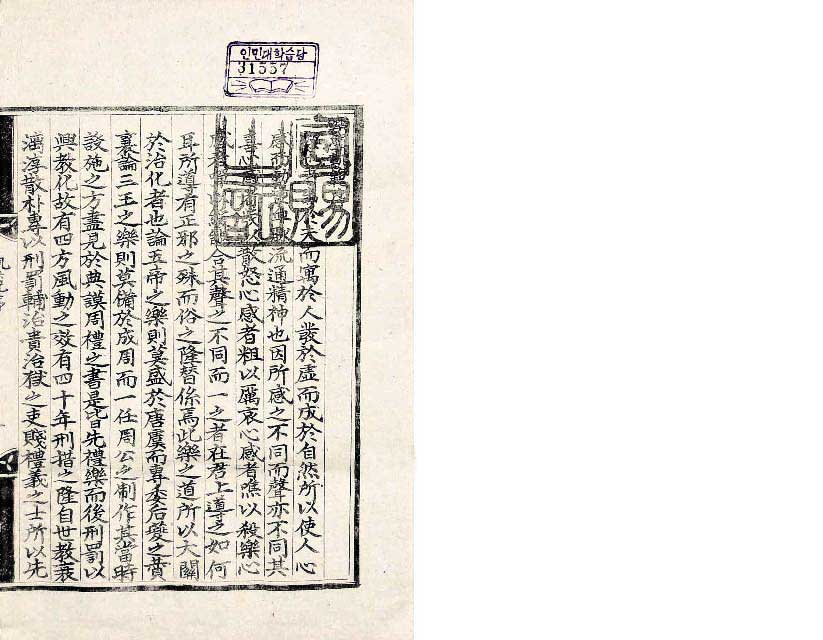 인민대학습당
31557
天而寓於人發於虛而成於自然所以使人心
感而動流通精神也因所感之不同而聲亦不同其
喜心感散怒心感者粗以厲哀心感者噍以殺樂心
合其聲之不同而一之者在君上導之如何
耳所導有正邪之殊而俗之隆替係焉此樂之道所以大關
於治化者也論五帝之樂則莫盛於唐虞而專委后夔之賛
襄論三王之樂則莫備於成周而一任周公之制作其當時
設施之方盡見於典謨周禮之書是皆先禮樂而後刑罰以
興教化故有四方風動之效有四十年刑措之隆自世教衰
漓淳散朴專以刑罰輔治貴治獄之吏賤禮義之士所以先